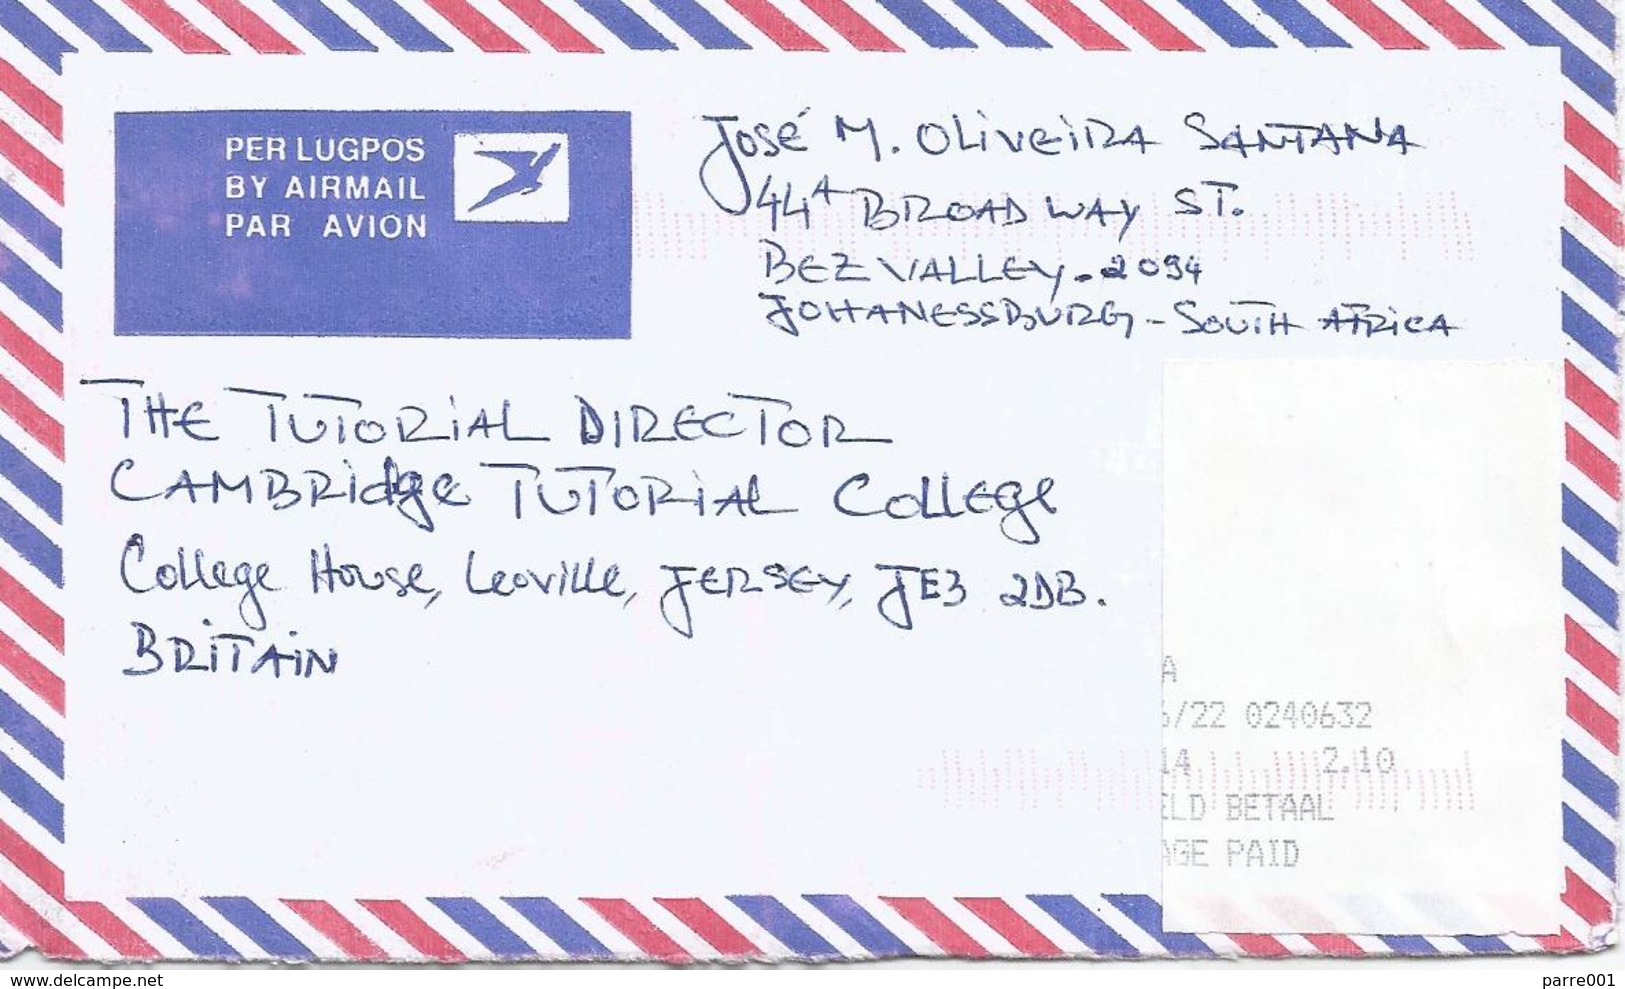 PER LUGPOS
BY AIRMAIL
PAR AVION
José M. Oliveira Santana
44A Broadway St.
Bez Valley - 2094
Johanessburg - South Africa
The Tutorial Director
Cambridge Tutorial College
College House, Leoville, Jersey, JE3 2DB.
Britain
A
6/22 0240632
14 2.10
ELD BETAAL
AGE PAID
parre001